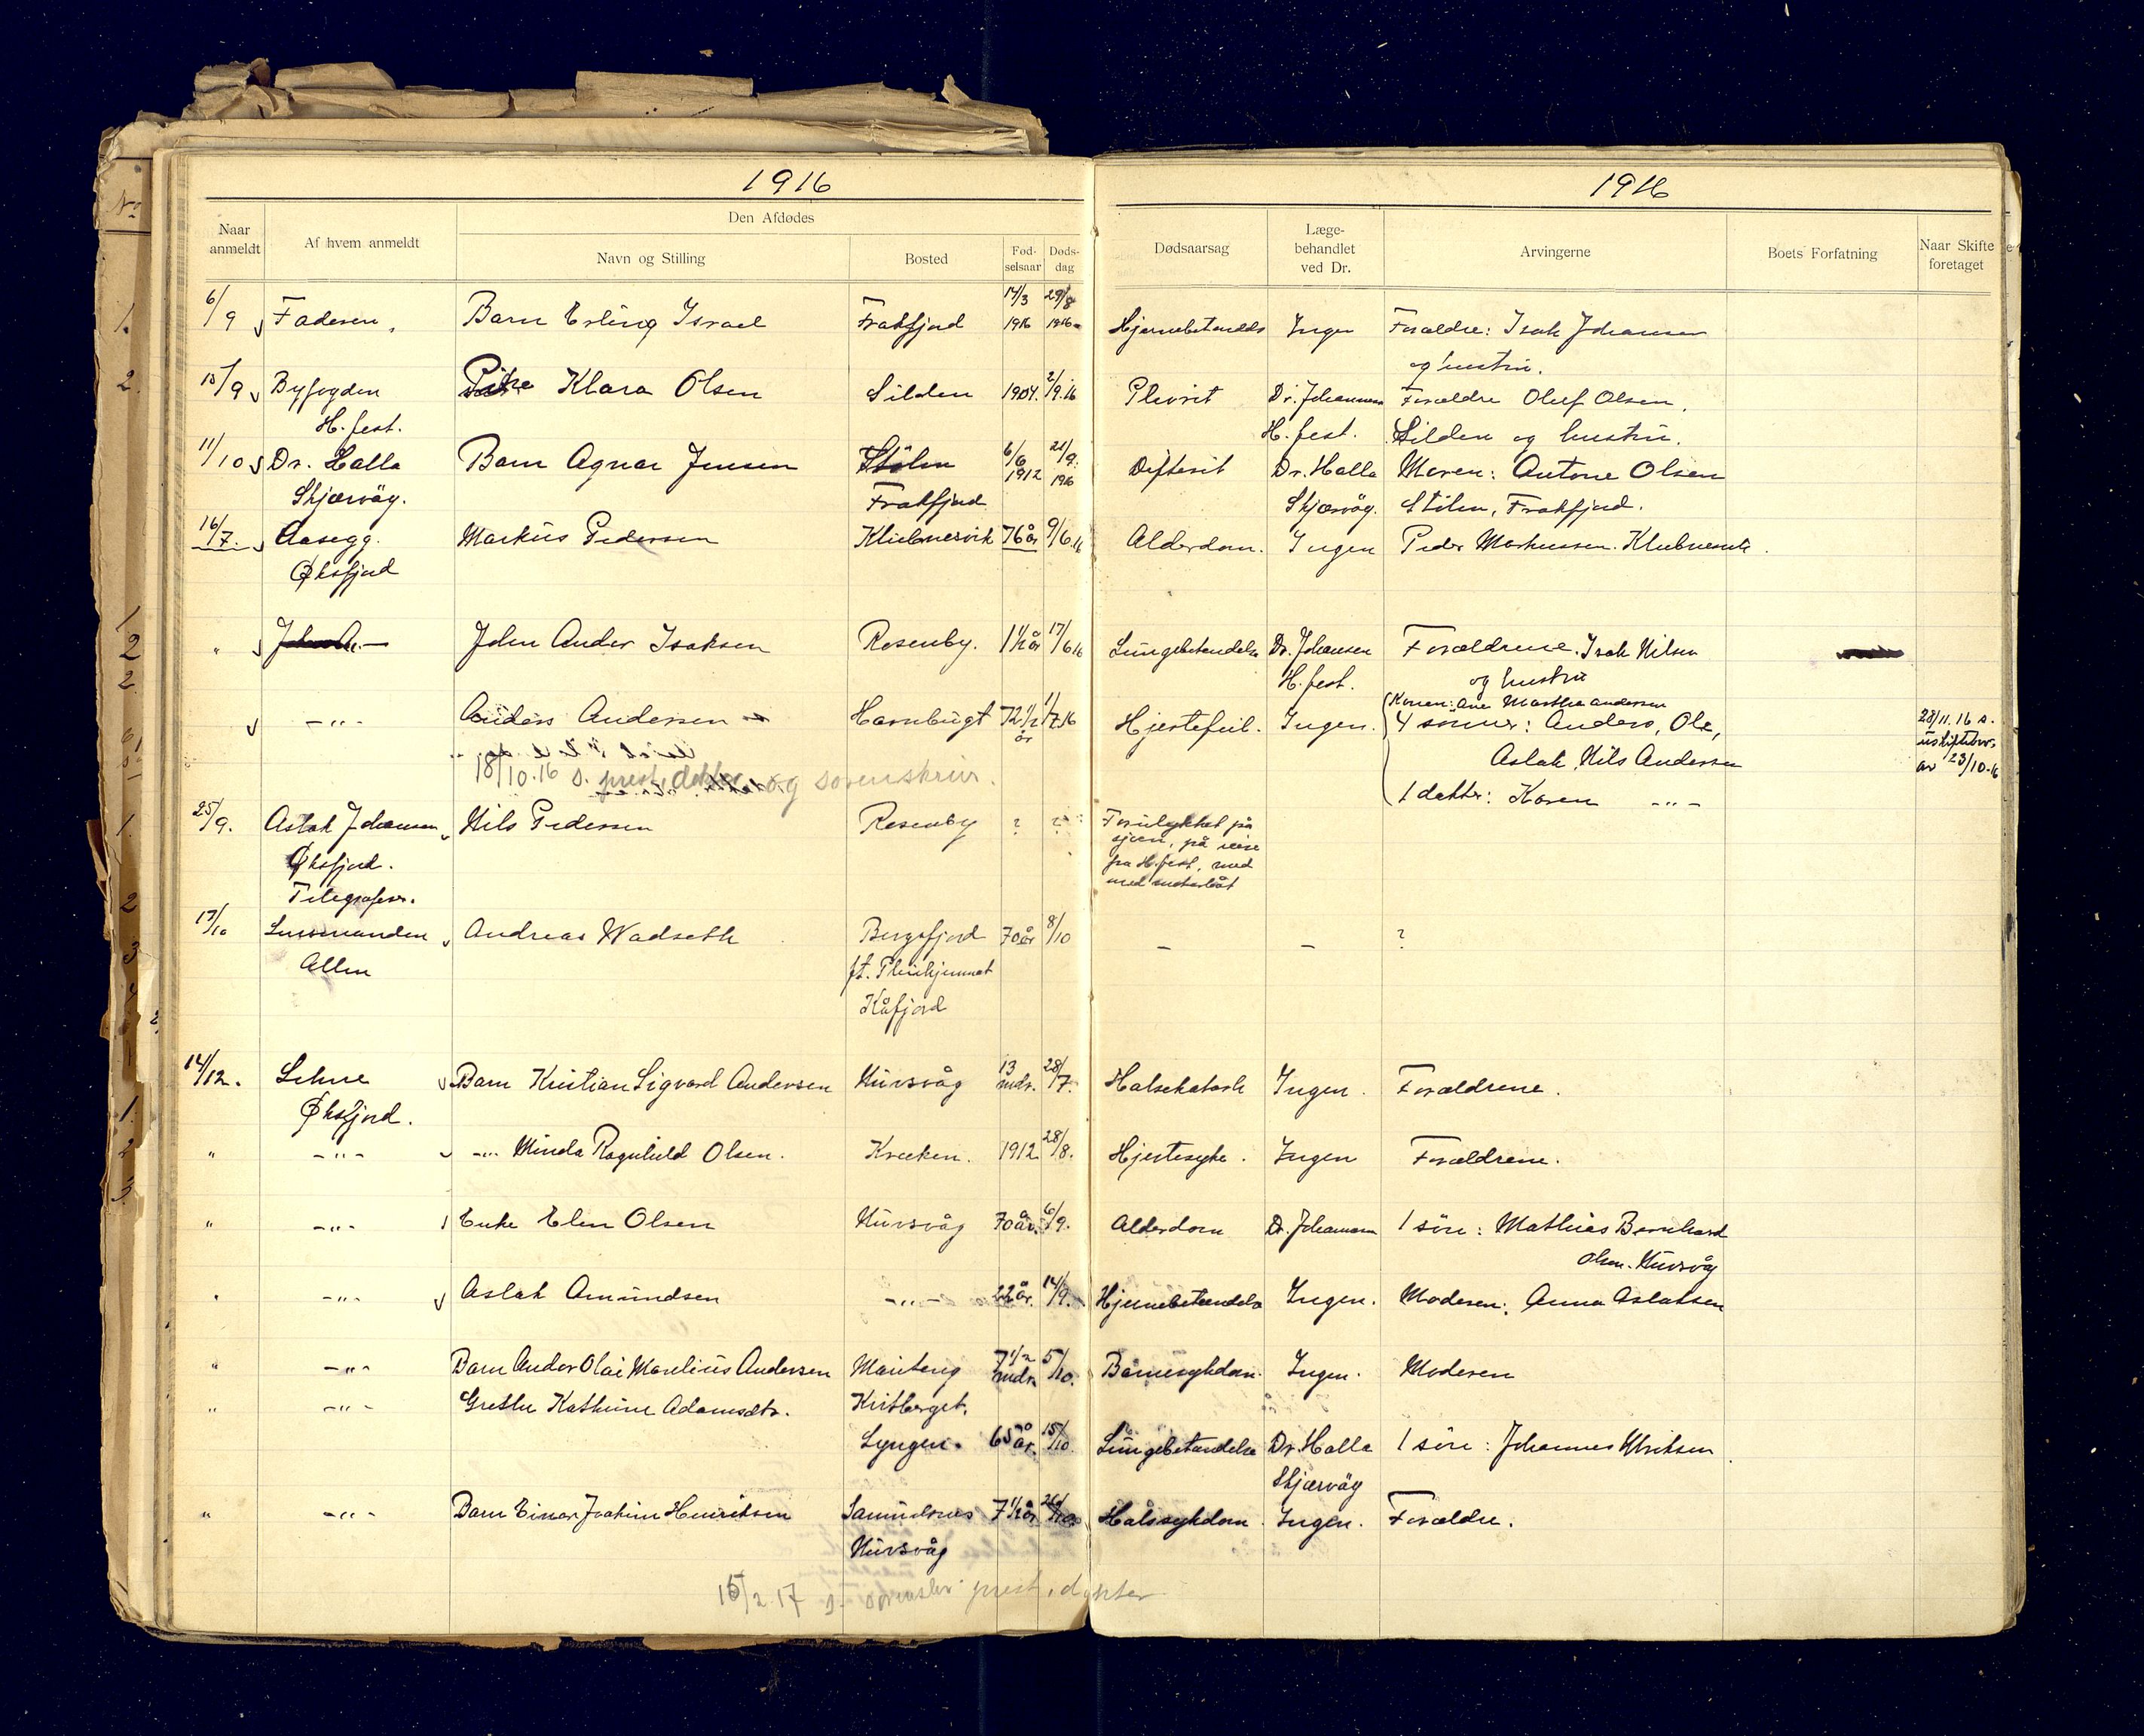 1916
1916
Naar anmeldt
Af hvem anmeldt
Den Afdødes
Navn og Stilling
Bosted
Fød-selsaar
Døds-dag
Dødsaarsag
Læge-behandlet ved Dr.
Arvingerne
Boets Forfatning
Naar Skifte foretaget
1. 6/9 Faderen, Barn Erling Israel Frakfjord 14/3 1916 29/8 1916 Hjernebetændels Ingen Forældre: Isak Johansen
og hustru.
2. 15/9 Byfogden Pike Klara Olsen Silden 1904. 2/9.16 Plevrit Dr. Johannesen Forældre Oluf Olsen,
H. fest. H. fest. Silden og hustru.
11/10 Dr. Halla Barn Agnar Jensen Stilen 6/6 1912 21/9. 1916 Difterit Dr. Halla Moren: Antone Olsen
Skjærvåg. Frakfjord Skjærvåg. Stilen, Frakfjord.
16/7. Aasegg. Markus Pedersen Klubnesvik 76 år 9/6.16 Alderdom. Ingen Peder Markussen. Klubnesvik.
Øksfjord
" John Ander Isaksen Rosenby. 1½ år 17/6 16 Lungebetændelse Dr. Johansen Forældrene. Isak Nilsen
H. fest. og hustru
Konen: Ane Marthea Andersen
-"- Anders Andersen Havnbugt 72½ år 1/7.16 Hjertefeil. Ingen. 4 sønner: Anders, Ole, 28/11.16 s.
Aslak, Nils Andersen av 23/10-16
18/10.16 s. prest, dokter og sorenskriv.
1 dattr: Karen -"-
1. 25/9. Aslak Johansen Nils Pedersen Rosenby ? ? Forulykket på
Øksfjord. sjøen, på reise
fra H. fest, med
Telegrafer. med motorbåt
17/10 Lensmanden Andreas Wadseth Bergsfjord 70 år 8/10 - - ?
Alten ft. Pleiehjemmet
Kåfjord
14/12. Lehne Barn Kristian Sigvard Andersen Nuvsvåg 13 mdr. 28/7. Halsekatarh Ingen. Forældrene.
Øksfjord.
" -"- -"- Minda Ragnhild Olsen. Kvæken. 1912 28/8. Hjertesyke. Ingen Forældrene.
" -"- Enke Elen Olsen Nuvsvåg 70 år. 6/9. Alderdom Dr. Johannesen 1 søn: Mathias Bernhard
Olsen. Nuvsvåg
" -"- Aslak Amundsen -"- 22 år. 14/9. Hjernebetændelse Ingen. Moderen: Anna Aslaksen
" -"- Barn Ander Olai Marelius Andersen 7½ mdr. 5/10. Barnesykdom. Ingen. Moderen
" -"- Grethe Kathrine Adamsdtr.
Lyngen. 65 år. 15/10 Lungebetændelse Dr. Halla 1 søn: Johannes Ulriksen
Skjærvåg
" -"- Barn Einar Joakim Henriksen 7½ år Halssykdom. Ingen. Forældre.
Nuvsvåg
15/2 17 s. sorenskr. prest, dokter